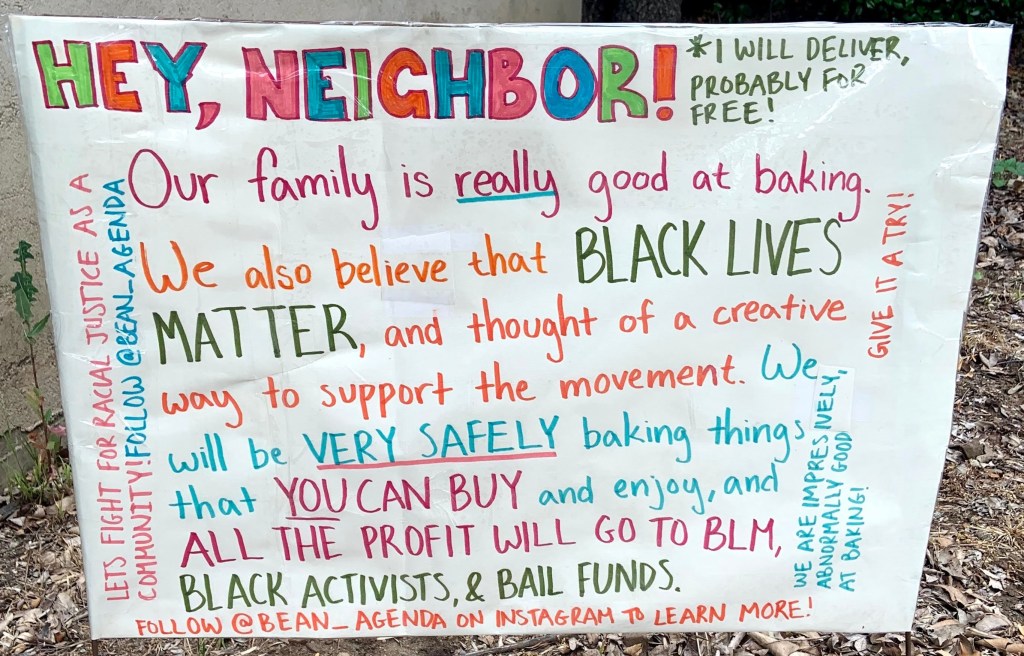 HEY, NEIGHBOR!
*I WILL DELIVER,
PROBABLY FOR
FREE!
Our family is really good at baking.
We also believe that BLACK LIVES
MATTER, and thought of a creative
way to support the movement. We
will be VERY SAFELY baking things
that YOU CAN BUY and enjoy, and
ALL THE PROFIT WILL GO TO BLM,
BLACK ACTIVISTS, & BAIL FUNDS.
FOLLOW @BEAN_AGENDA ON INSTAGRAM TO LEARN MORE!
LETS FIGHT FOR RACIAL JUSTICE AS A
COMMUNITY! FOLLOW @BEAN_AGENDA
GIVE IT A TRY!
WE ARE IMPRESSIVELY,
ABNORMALLY GOOD
AT BAKING!